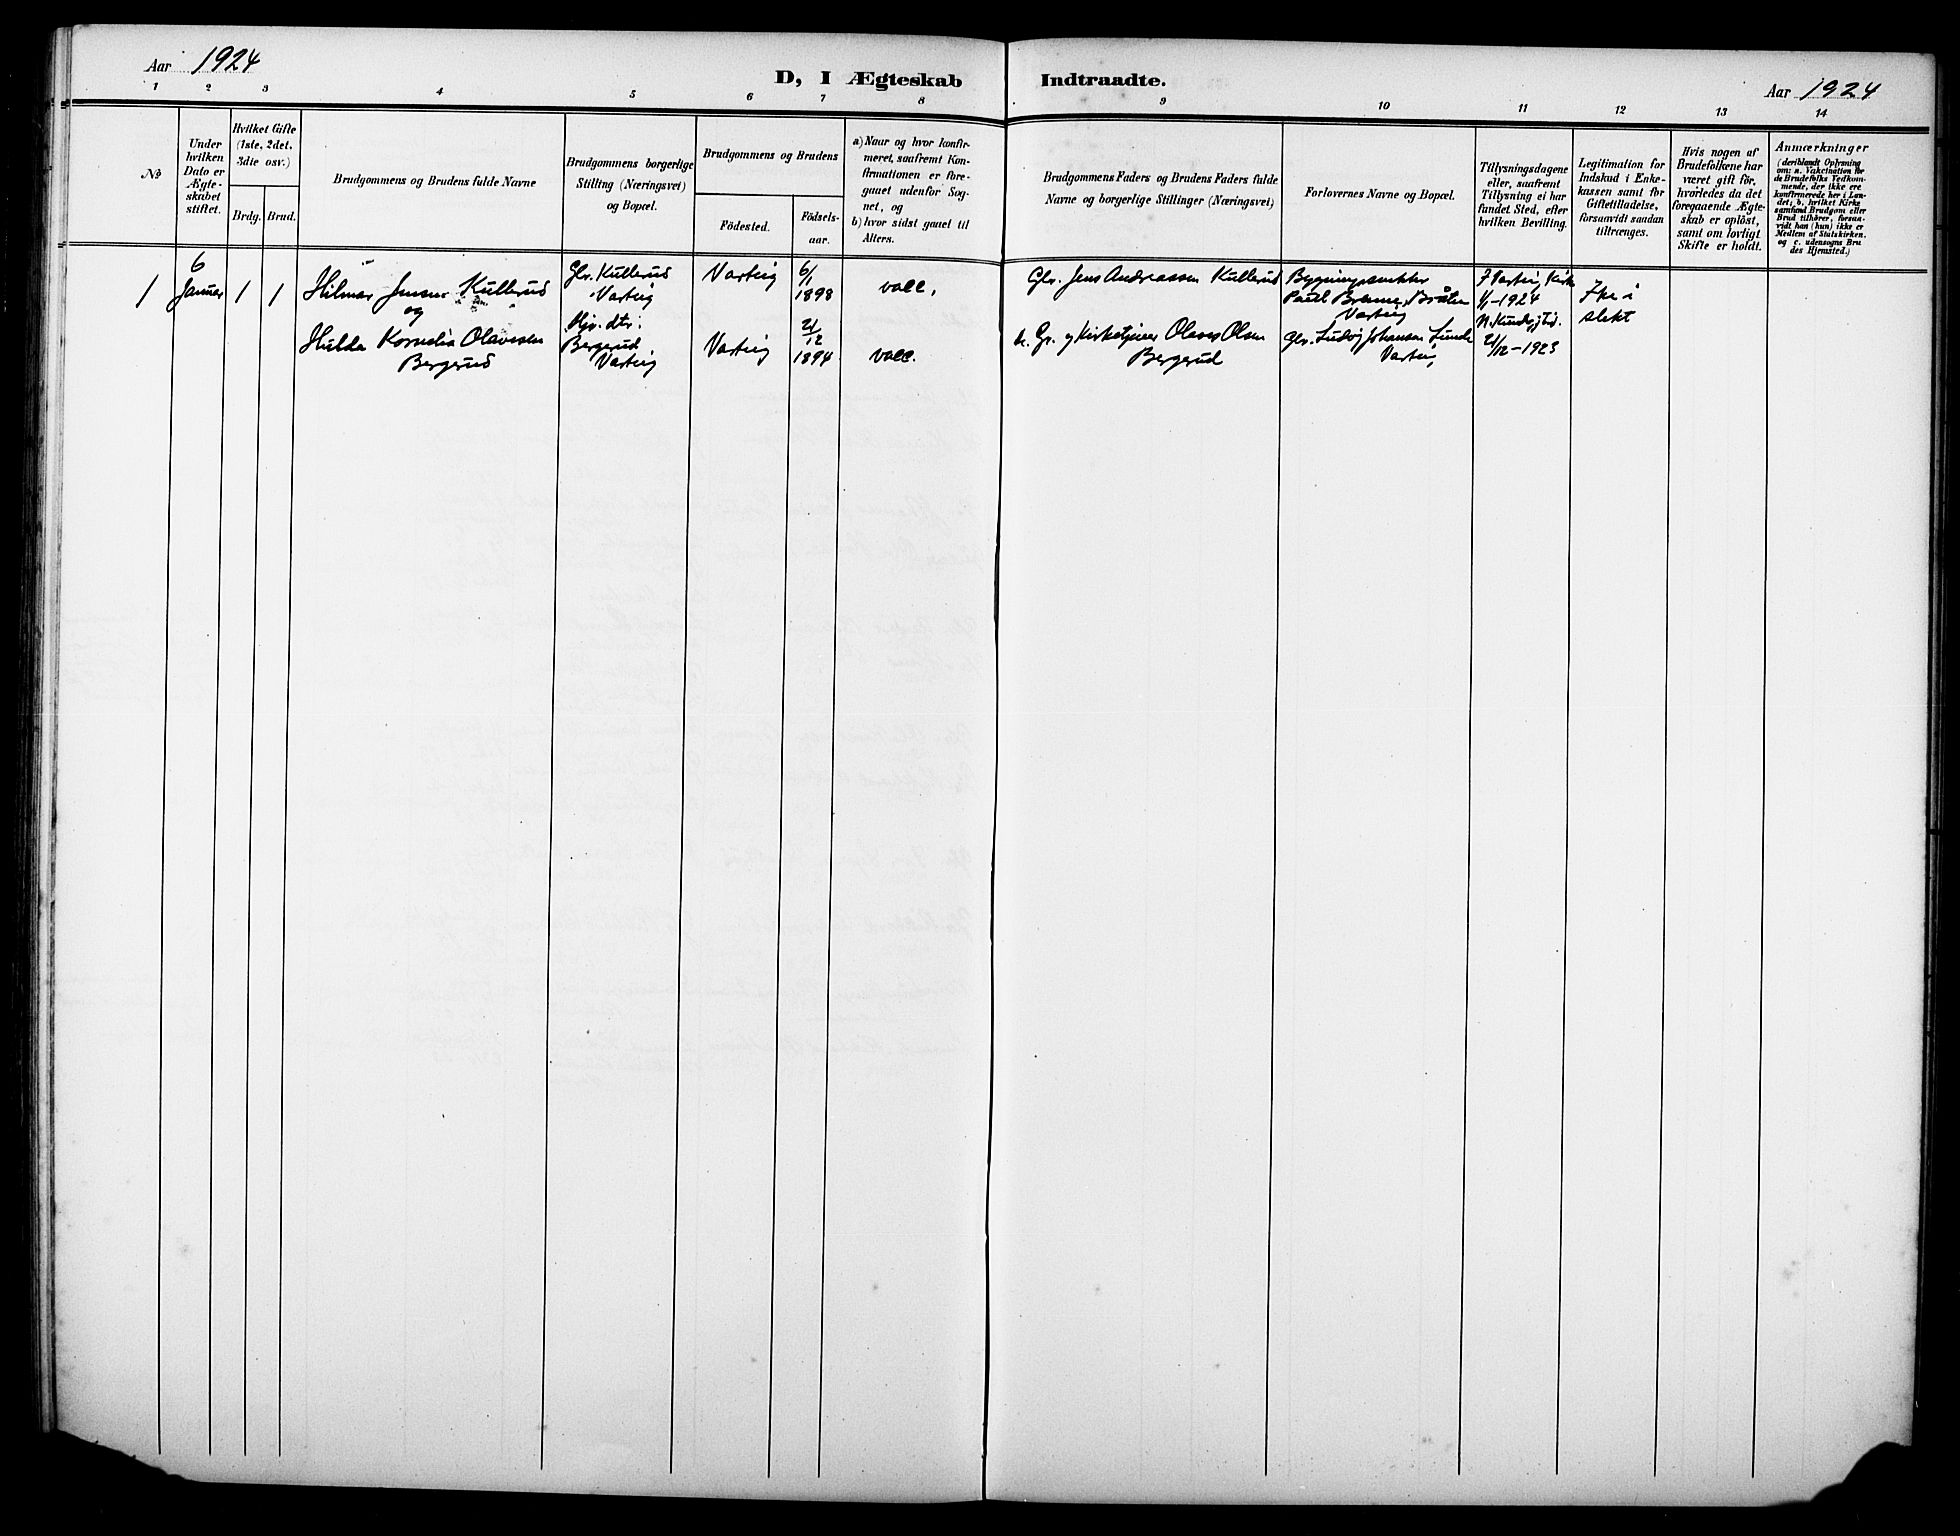 Aar 1924
D, I Ægteskab Indtraadte.
Aar 1924
1 2 3 4 5 6 7 8 9 10 11 12 13 14
No
Under
hvilken
Dato er
Ægte-
skabet
stiftet.
Hvilket Gifte
(1ste, 2det,
3die osv.)
Brdg. Brud.
Brudgommens og Brudens fulde Navne
Brudgommens borgerlige
Stilling (Næringsvei)
og Bopæl.
Brudgommens og Brudens
Födested.
Födsels-
aar.
a) Naar og hvor konfir-
meret, saafremt Kon-
firmationen er fore-
gaaet udenfor Sog-
net, og
b) hvor sidst gaaet til
Alters.
Brudgommens Faders og Brudens Faders fulde
Navne og borgerlige Stillinger (Næringsvei)
Forlovernes Navne og Bopæl.
Tillysningsdagene
eller, saafremt
Tillysning ei har
fundet Sted, efter
hvilken Bevilling.
Legitimation for
Indskud i Enke-
kassen samt för
Giftetilladelse,
forsaavidt saadan
tiltrænges.
Hvis nogen af
Brudefolkene har
været gift för,
hvorledes da det
foregaaende Ægte-
skab er oplöst,
samt om lovligt
Skifte er holdt.
Anmærkninger
(deriblandt Oplysning
om: a. Vakcination for
de Brudefolks Vedkom-
mende, der ikke ere
konfirmerede her i Lan-
det; b. hvilket Kirke
samfund Brudgom eller
Brud tilhörer, forsaa-
vidt han (hun) ikke er
Medlem af Statskirken.
og c. udensogns Bru
des Hjemsted.)
1
6
Januar
1 1
Hilmar Jensen Kullerud
og
Hulda Kornelia Olavesen
Bergerud
Gbr. Kullerud
Varteig
Hjv. dtr:
Bergerud
Varteig
Varteig
Varteig
6/1
1898
21/12
1894
vacc.
vacc.
Gbr. Jens Andreassen Kullerud
Gr. og Kirketjener Olaves Olsen
Bergerud
Bygningssnekker
Paul Bråten
Varteig
Gbr. Ludvig Johansen Lunde
Varteig
I Varteig Kirke
1/1-1924
21/12-1923
Ikke i
slekt